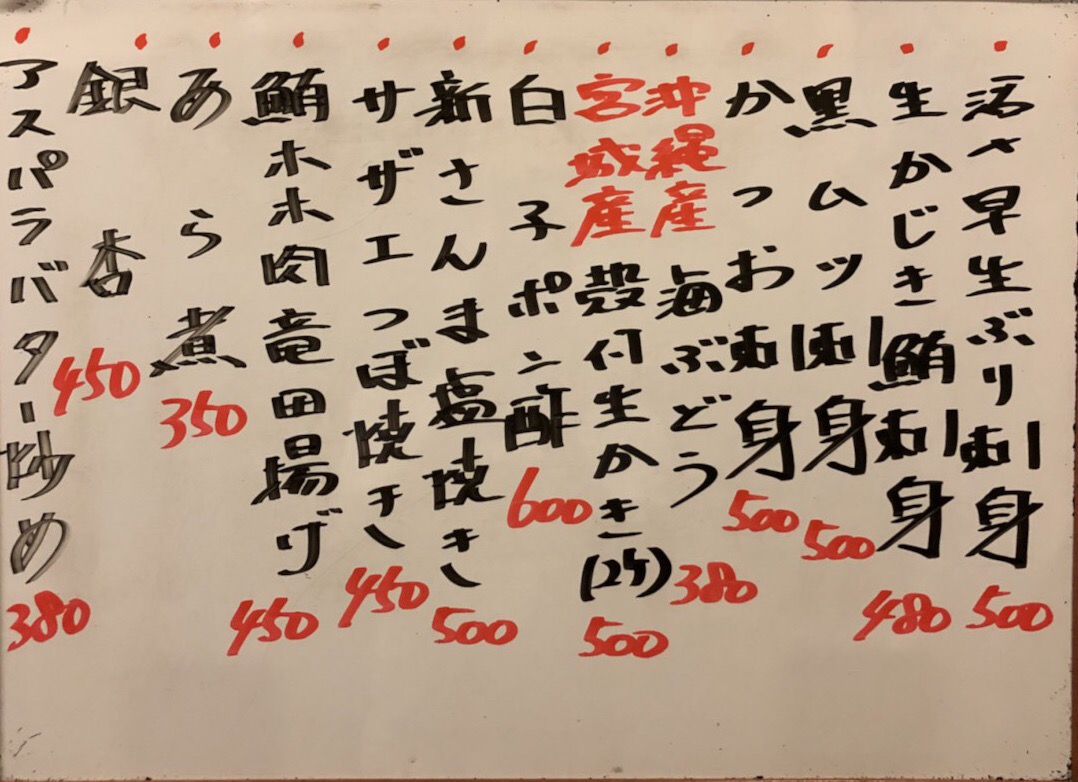 活〆早生ぶり刺身 500
生かじき鮪刺身 480
黒ムツ刺身 500
かつお刺身 500
沖縄産海ぶどう 380
宮城産殻付生かき(2ケ) 500
白子ポン酢 600
新さんま塩焼き 500
サザエつぼ焼き 450
鮪ホホ肉竜田揚げ 450
あら煮 350
銀杏 450
アスパラバター炒め 380